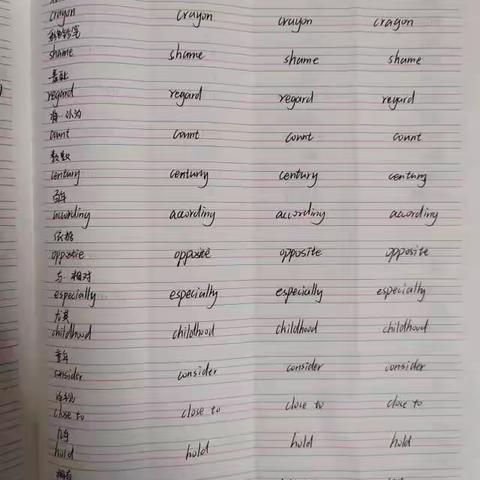 crayon crayon crayon crayon
shame shame shame shame
羞耻
regard regard regard regard
count count count count
数数
century century century century
according according according according
依据
opposite opposite opposite opposite
与 相对
especially especially especially especially
尤其
childhood childhood childhood childhood
童年
consider consider consider consider
close to close to close to close to
hold hold hold hold
拥有